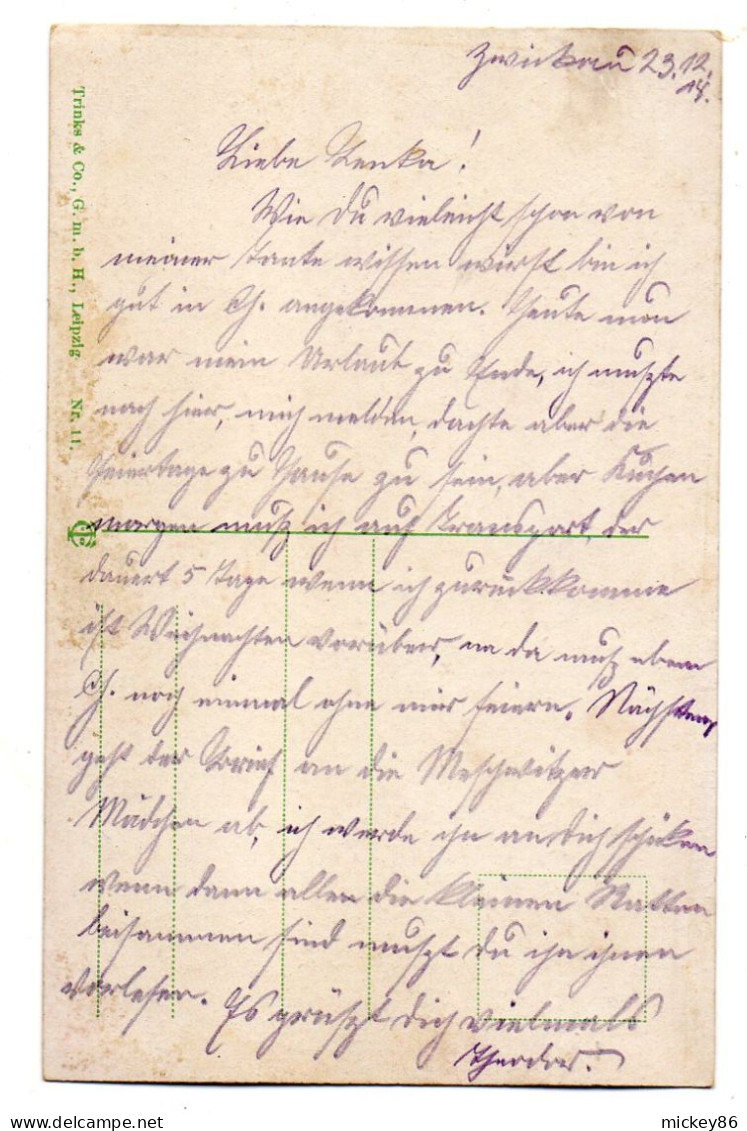 Zwickau 23.12.
14.
Liebe Lenka!
Wie Du vieleicht schon von
meiner Tante wissen wirst bin ich
gut in Ch. angekommen. Heute
war mein Urlaub zu Ende, ich muszte
nach hier, mich melden, dachte aber die
Feiertage zu Hause zu sein, aber Kuchen
morgen musz ich auf Transport, der
dauert 5 Tage wenn ich zurückkomme
ist Weihnachten vorüber, na da musz eben
Ch. noch einmal ohne mir feiern. Nächstens
geht der Brief an die Meschwitzer
Mädchen ab, ich werde ihn an Dich schicken
wenn dann alle die kleinen Ratten
beisammen sind muszt Du ihn ihnen
vorlesen. Es grüszt Dich vielmals
Theodor.
Trinks & Co., G. m. b. H., Leipzig Nr. 11.
mickey86